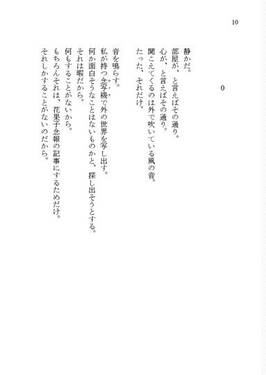 10
0
静かだ。
部屋が、と言えばその通り。
心が、と言えばその通り。
聞こえてくるのは外で吹いている風の音。
たった、それだけ。
音を鳴らす。
私が持つ念写機で外の世界を写し出す。
何か面白そうなことはないものかと、探し出そうとする。
それは暇だから。
何もすることがないから。
もちろんそれは、花果子念報の記事にするためだけ。
それしかすることがないのだから。